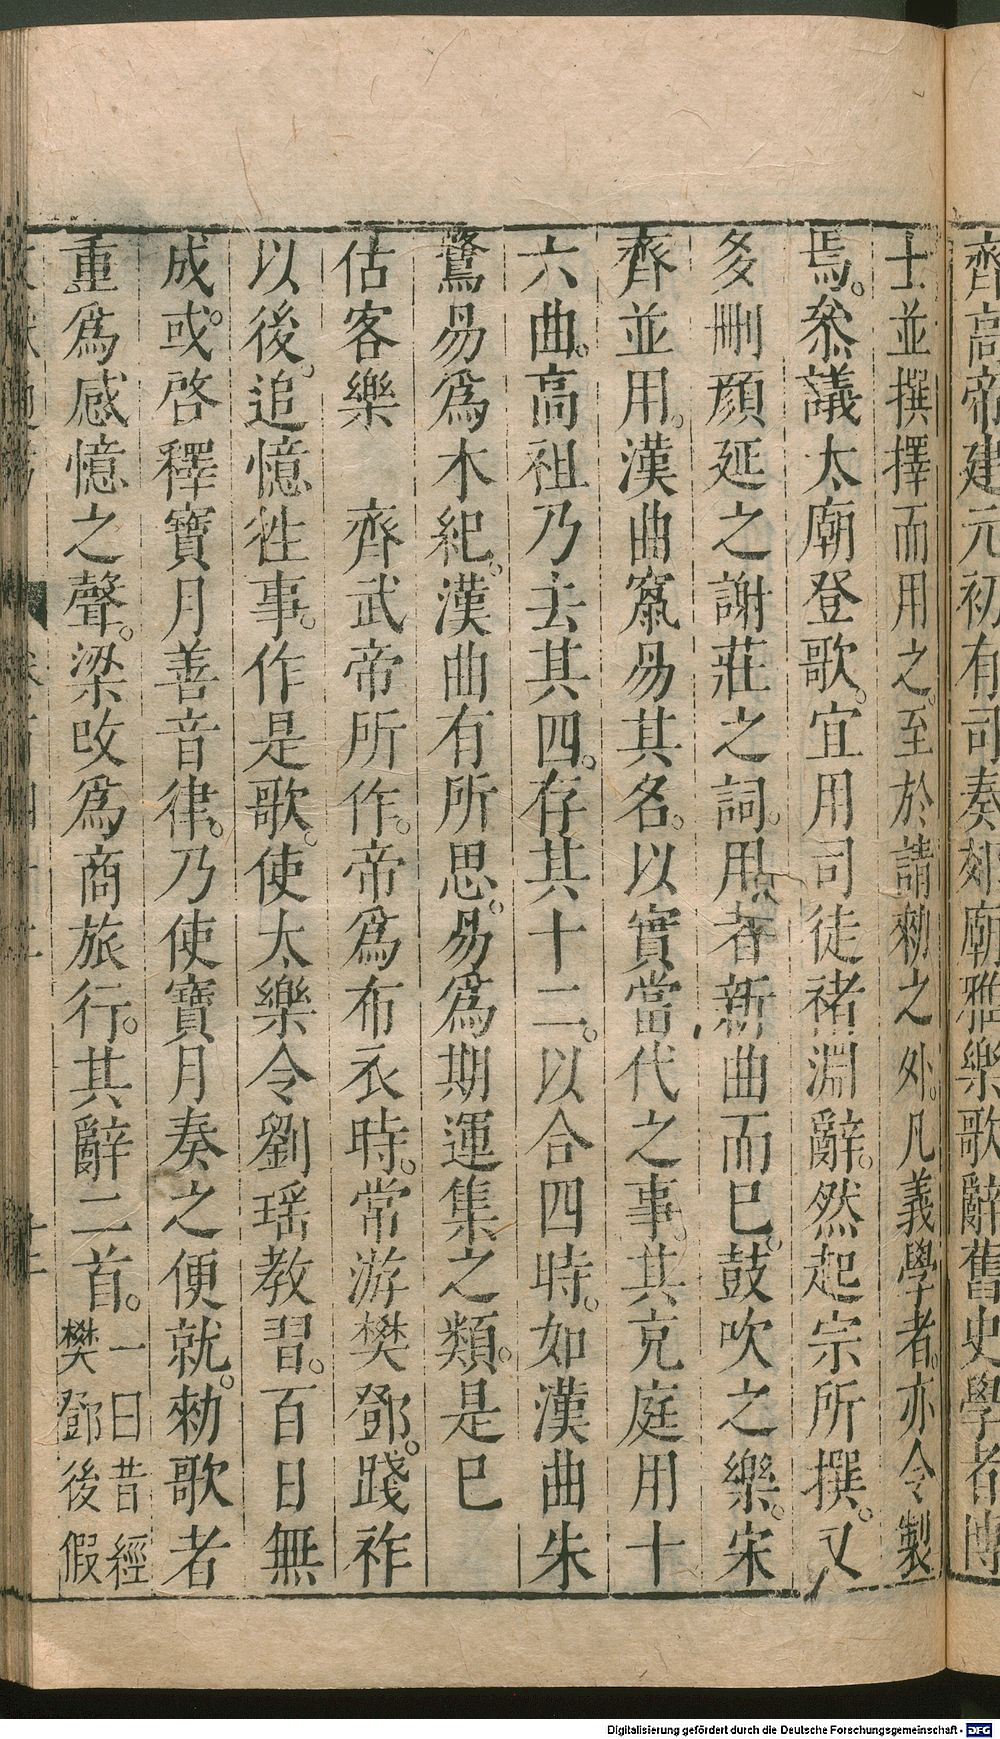 齊高帝建元初有司奏郊廟雅樂歌辭舊史學者博
士並撰擇而用之。至於請勑之外。凡義學者。亦令製
焉。叅議太廟登歌。宜用司徒褚淵辭。然起宗所撰。又
多刪顏延之謝莊之詞。用者新曲而已。鼓吹之樂。宋
齊並用。漢曲窾易其名。以實當代之事。其充庭用十
六曲。高祖乃去其四。存其十二。以合四時。如漢曲朱
鷺易爲木紀。漢曲有所思。易爲期運集之類。是巳
估客樂　齊武帝所作。帝爲布衣時。常游樊鄧。踐祚
以後。追憶徃事。作是歌。使太樂令劉瑶教習。百日無
成。或啓釋寶月善音律。乃使寶月奏之便就。勑歌者
重爲感憶之聲。梁改爲商旅行。其辭二首。一曰昔經
樊鄧後假
Digitalisierung gefördert durch die Deutsche Forschungsgemeinschaft - DFG